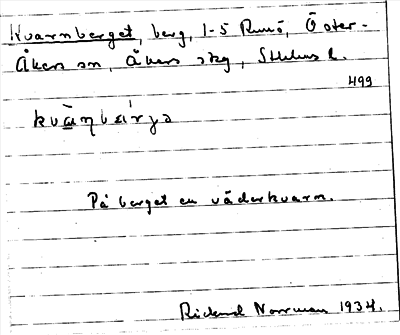 Kvarnberget, berg, 1-5 Runö, Öster-
Åkers sn, Åkers skg, Sthlms l.
499
kvὰɳbæ̀rjə
På berget en väderkvarn.
Rickard Norrman 1934.